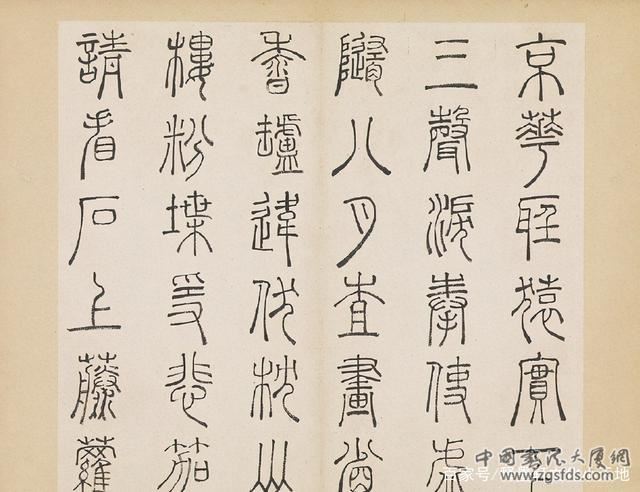 京華聽猿實下
三聲淚奉使虛
隨八月查畫省
香罏違伏枕山
樓粉堞𤔌悲笳
請看石上藤蘿
百家号/
中國書法大厦網
www.zgsfds.com